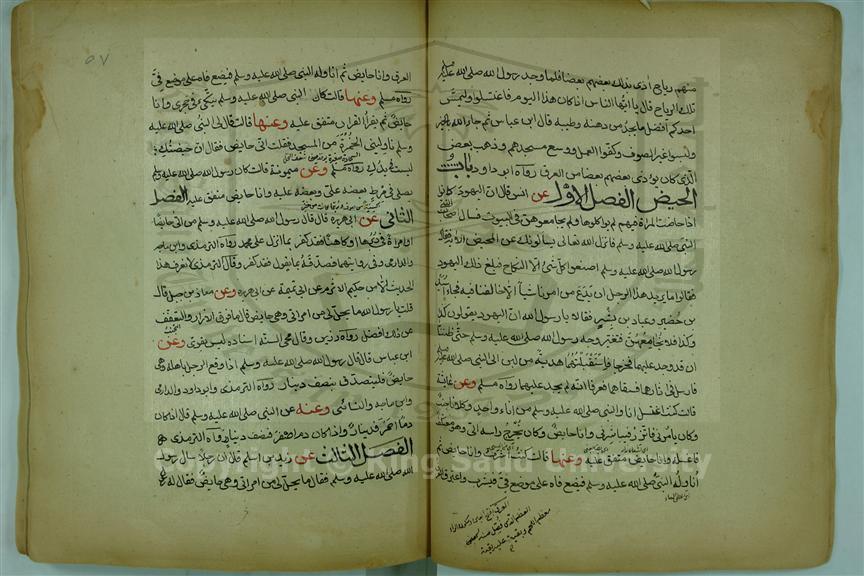 منهم رياح آذى بذلك بعضهم بعضا فلما وجد رسول الله صلى الله عليه وسلم
تلك الرياح قال يا ايها الناس اذا كان هذا اليوم فاغتسلوا وليمس
احدكم افضل ما يجد من دهنه وطيبه قال ابن عباس ثم جاء الله بالخير
ولبسوا غير الصوف وكفوا العمل ووسع مسجدهم وذهب بعض
الذي كان يؤذي بعضهم بعضا من العرق رواه ابو داود باب
الحيض الفصل الاول عن انس قال ان اليهود كانوا
اذا حاضت المرأة فيهم لم يؤاكلوها ولم يجامعوهن في البيوت فسأل
النبي صلى الله عليه وسلم فانزل الله تعالى يسألونك عن المحيض الآية فقال
رسول الله صلى الله عليه وسلم اصنعوا كل شئ الا النكاح فبلغ ذلك اليهود
فقالوا ما يريد هذا الرجل ان يدع من امرنا شيأ الا خالفنا فيه فجاء اسيد
بن حضير وعباد بن بشر فقالا يا رسول الله ان اليهود يقولون كذا
وكذا افلا نجامعهن فتغير وجه رسول الله صلى الله عليه وسلم حتى ظننا
ان قد وجد عليهما فخرجا فاستقبلتهما هدية من لبن الى النبي صلى الله عليه وسلم
فارسل في آثارهما فسقاهما فعرفا انه لم يجد عليهما رواه مسلم وعن عائشة
قالت كنت اغتسل انا والنبي صلى الله عليه وسلم من اناء واحد وكلانا جنب
وكان يأمرني فاتزر فيباشرني وانا حائض وكان يخرج رأسه الي وهو معتكف
فاغسله وانا حائض متفق عليه وعنها قالت كنت اشرب وانا حائض ثم
اناوله النبي صلى الله عليه وسلم فيضع فاه على موضع في فيشرب واتعرق
العرق وانا حائض ثم اناوله النبي صلى الله عليه وسلم فيضع فاه على موضع في
رواه مسلم وعنها قالت كان النبي صلى الله عليه وسلم يتكئ في حجري وانا
حائض ثم يقرأ القرآن متفق عليه وعنها قالت قال لي النبي صلى الله عليه
وسلم ناوليني الخمرة من المسجد فقلت اني حائض فقال ان حيضتك
ليست في يدك رواه مسلم وعن ميمونة قالت كان رسول الله صلى الله عليه وسلم
يصلي في مرط بعضه علي وبعضه عليه وانا حائض متفق عليه الفصل
الثاني عن ابي هريرة قال قال رسول الله صلى الله عليه وسلم من اتى حائضا
او امرأة في دبرها او كاهنا فقد كفر بما انزل على محمد رواه الترمذي وابن ماجه
والدارمي وفي روايتهما فصدقه بما يقول فقد كفر وقال الترمذي لا نعرف هذا
الحديث الا من حكيم الاثرم عن ابي تميمة عن ابي هريرة وعن معاذ بن جبل قال
قلت يا رسول الله ما يحل لي من امرأتي وهي حائض قال ما فوق الازار والتعفف
عن ذلك افضل رواه رزين وقال محي السنة اسناده ليس بقوي وعن
ابن عباس قال قال رسول الله صلى الله عليه وسلم اذا وقع الرجل باهله وهي
حائض فليتصدق بنصف دينار رواه الترمذي وابو داود والدارمي
وابن ماجه والنسائي وعنه عن النبي صلى الله عليه وسلم قال اذا كان
دما احمر فدينار واذا كان دما اصفر فنصف دينار رواه الترمذي
الفصل الثالث عن زيد بن اسلم قال ان رجلا سأل رسول
الله صلى الله عليه وسلم فقال ما يحل لي من امرأتي وهي حائض فقال له
Copyright © King Saud University